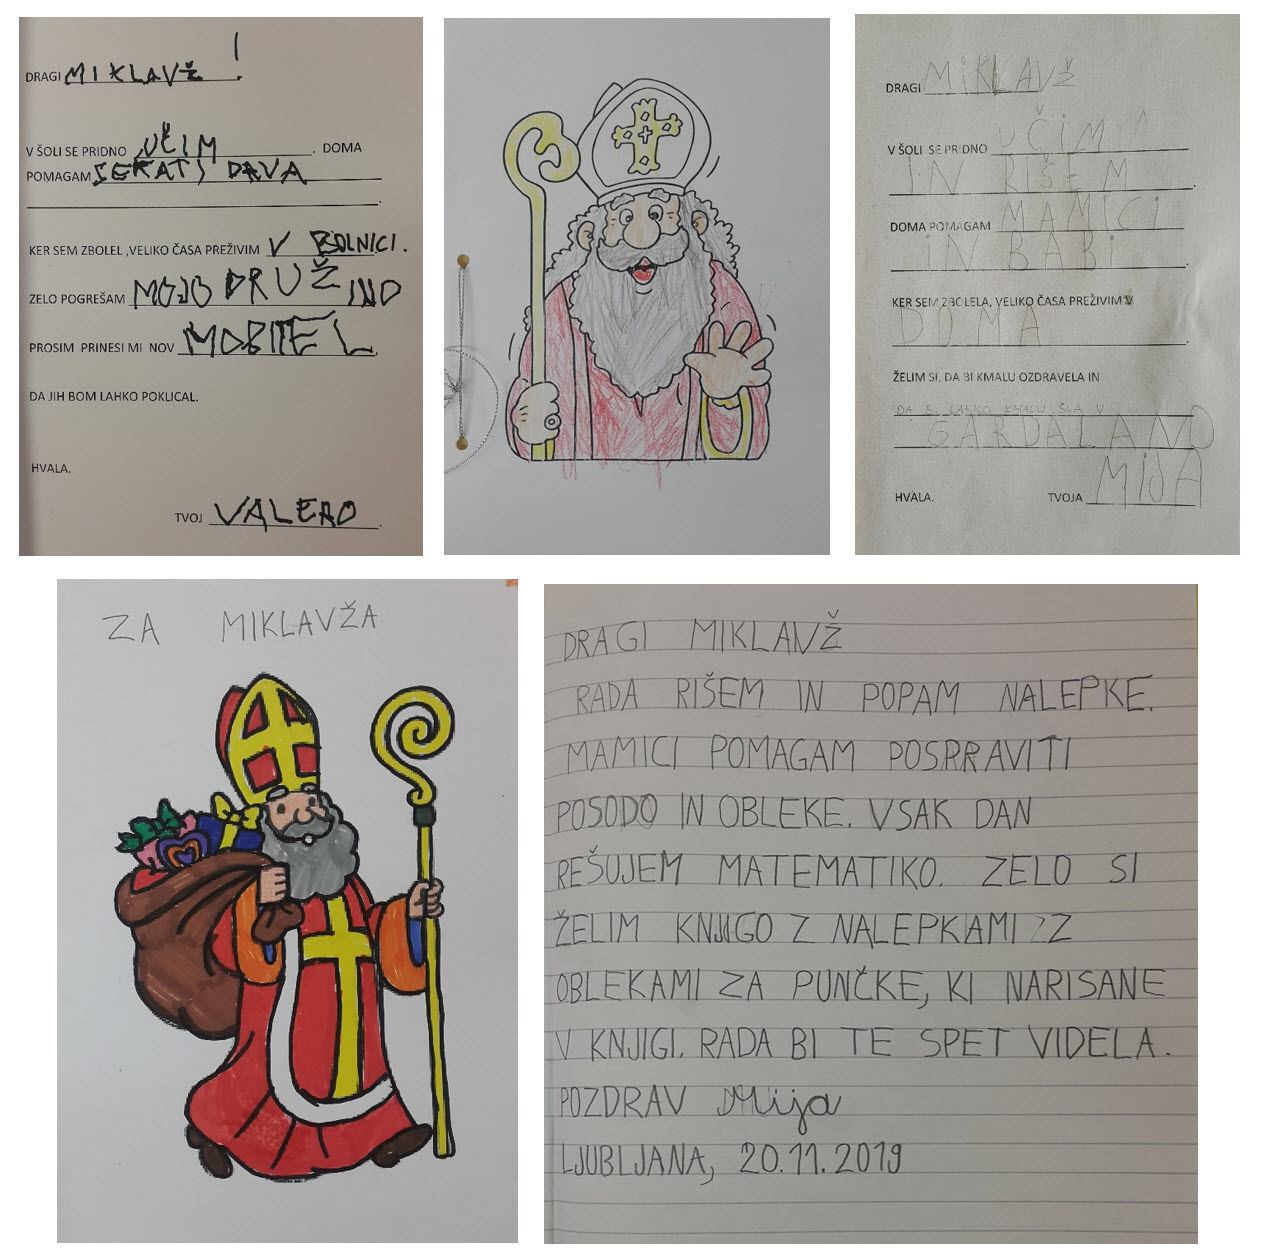 DRAGI MIKLAVŽ !
V ŠOLI SE PRIDNO UČIM . DOMA
POMAGAM SEKATI DRVA
KER SEM ZBOLEL ,VELIKO ČASA PREŽIVIM V BOLNICI.
ZELO POGREŠAM MOJO DRUŽINO
PROSIM PRINESI MI NOV MOBITEL
DA JIH BOM LAHKO POKLICAL.
HVALA.
TVOJ VALERO
DRAGI MIKLAVŽ
V ŠOLI SE PRIDNO UČIM
IN RIŠEM
DOMA POMAGAM MAMICI
IN BABI
KER SEM ZBOLELA, VELIKO ČASA PREŽIVIM V
DOMA
ŽELIM SI, DA BI KMALU OZDRAVELA IN
DA B LAHKO KMALU ŠLA V
GARDALAND
HVALA. TVOJA MIJA
ZA MIKLAVŽA
DRAGI MIKLAVŽ
RADA RIŠEM IN POPAM NALEPKE.
MAMICI POMAGAM POSPRAVITI
POSODO IN OBLEKE. VSAK DAN
REŠUJEM MATEMATIKO. ZELO SI
ŽELIM KNJIGO Z NALEPKAMI Z
OBLEKAMI ZA PUNČKE, KI NARISANE
V KNJIGI. RADA BI TE SPET VIDELA.
POZDRAV Mija
LJUBLJANA, 20.11.2019